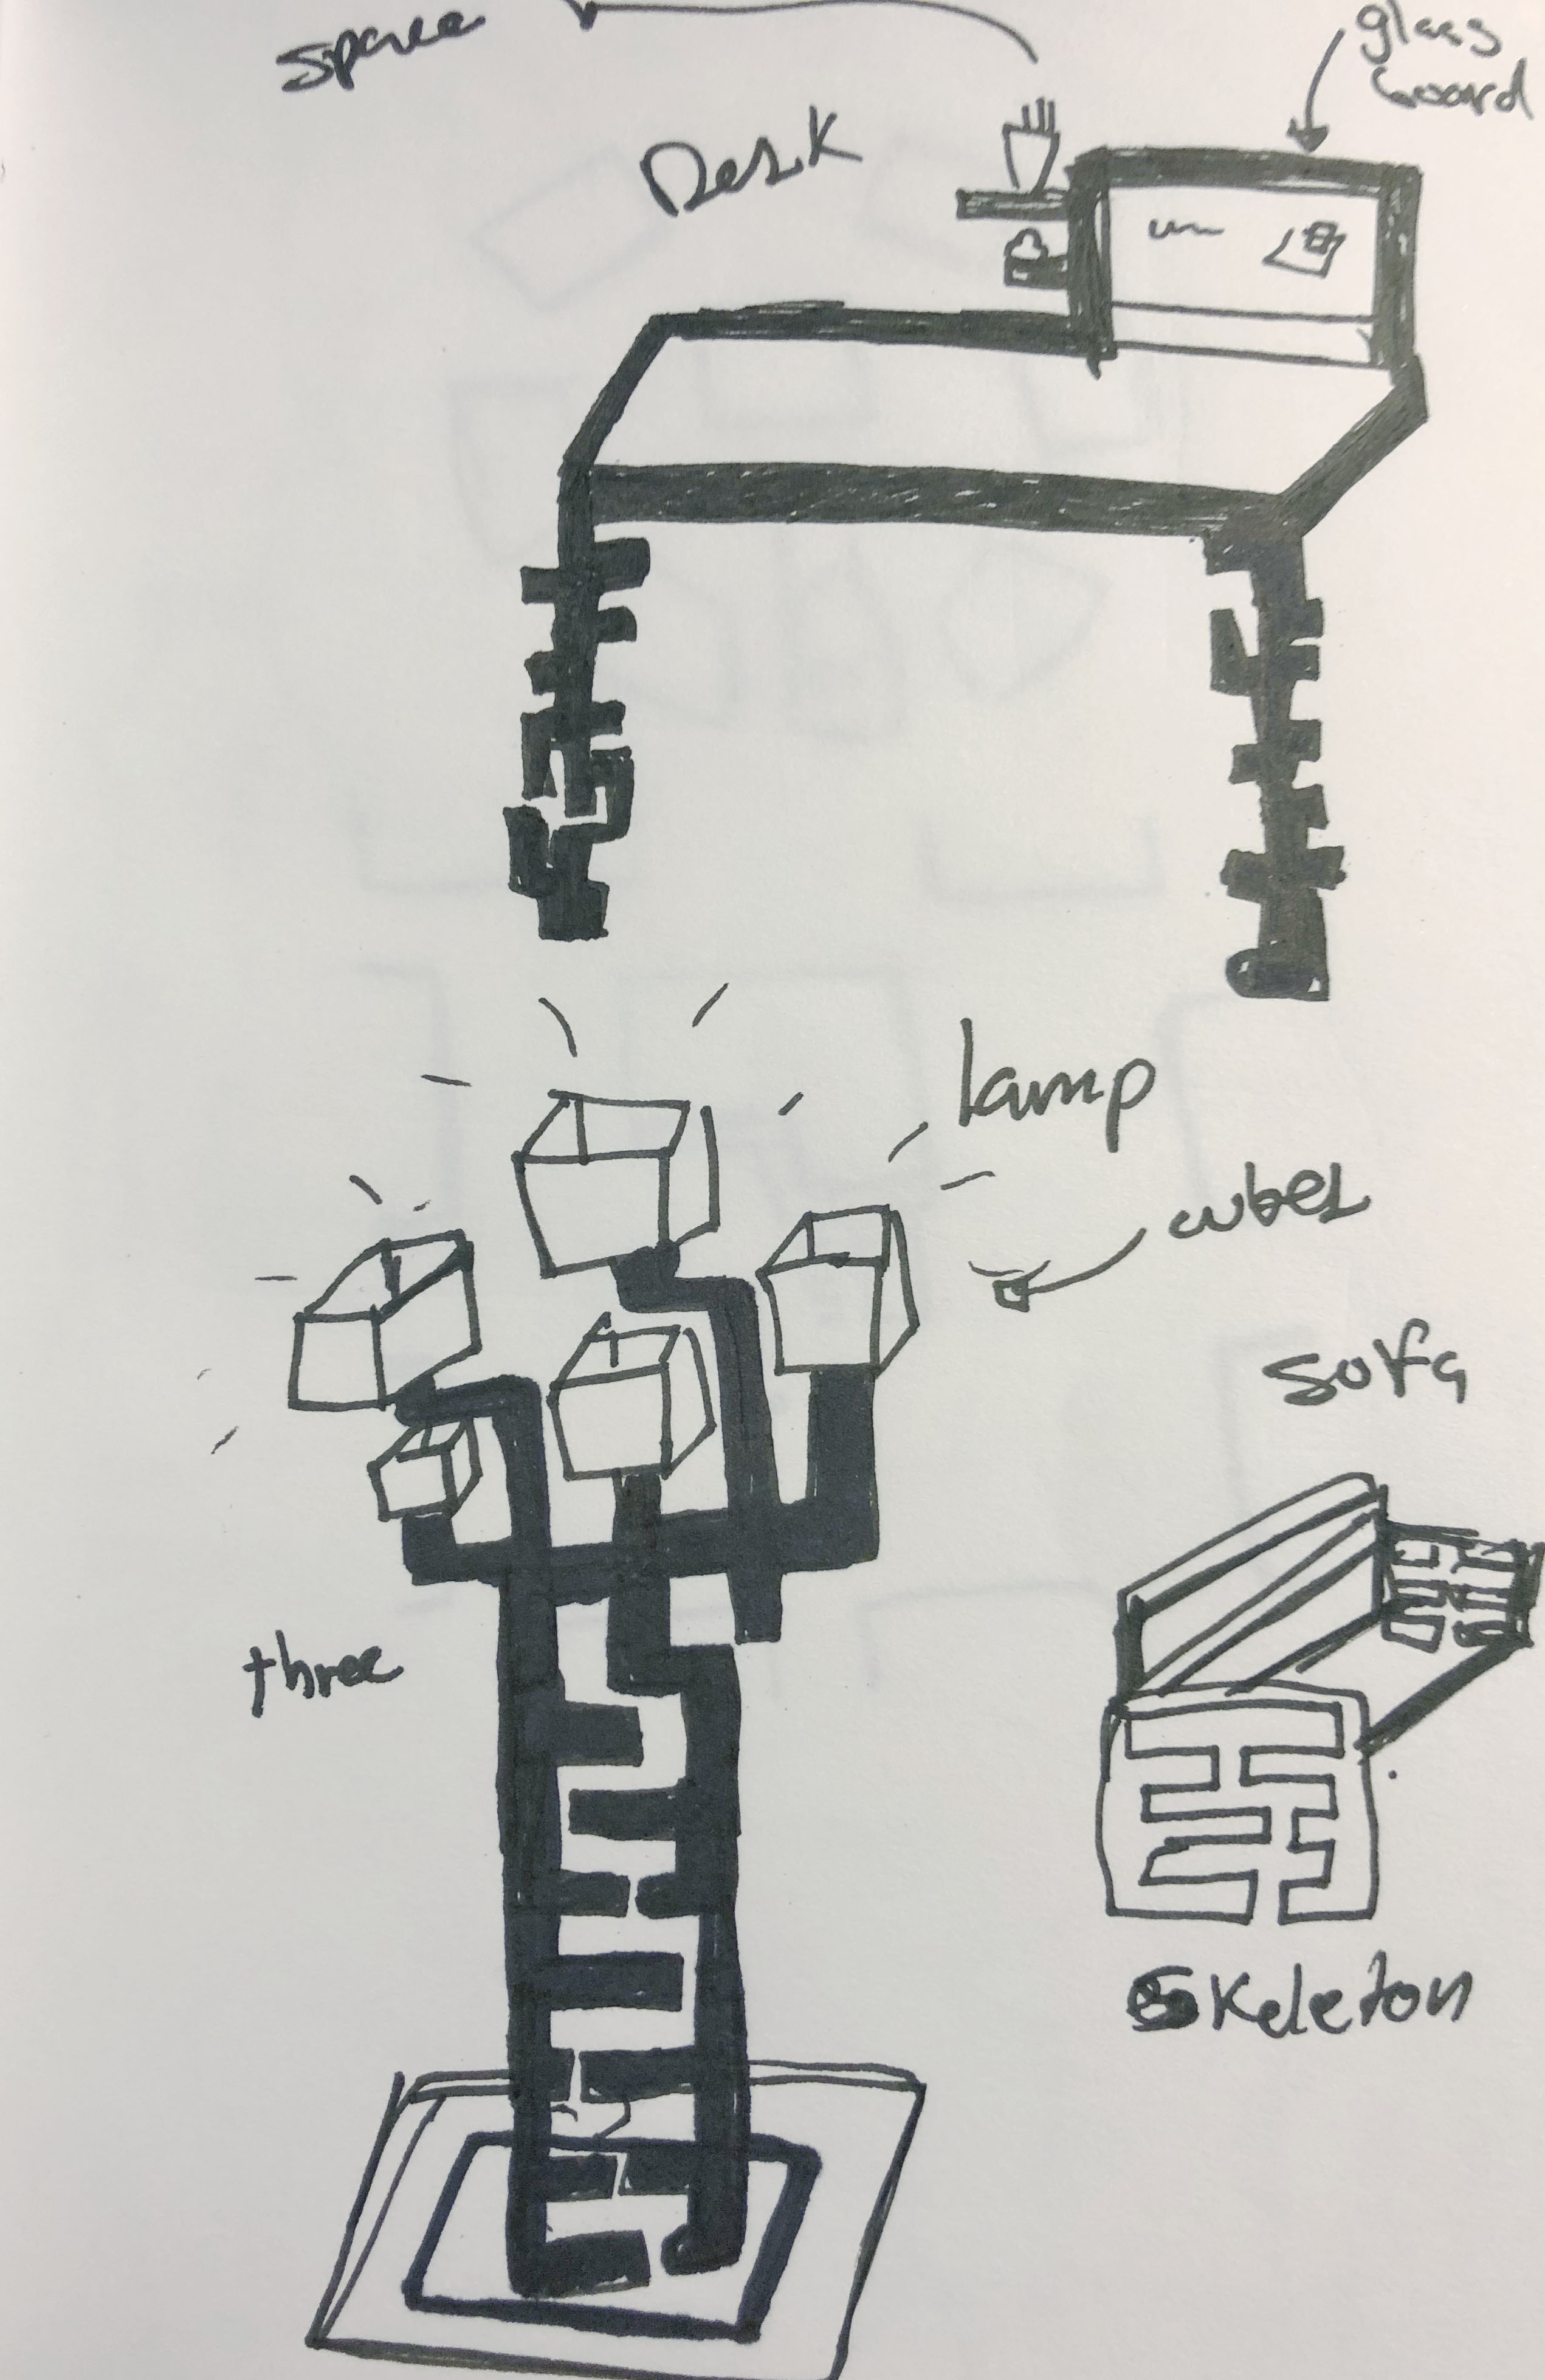 space
glass
board
Desk
lamp
cubes
sofa
three
Skeleton